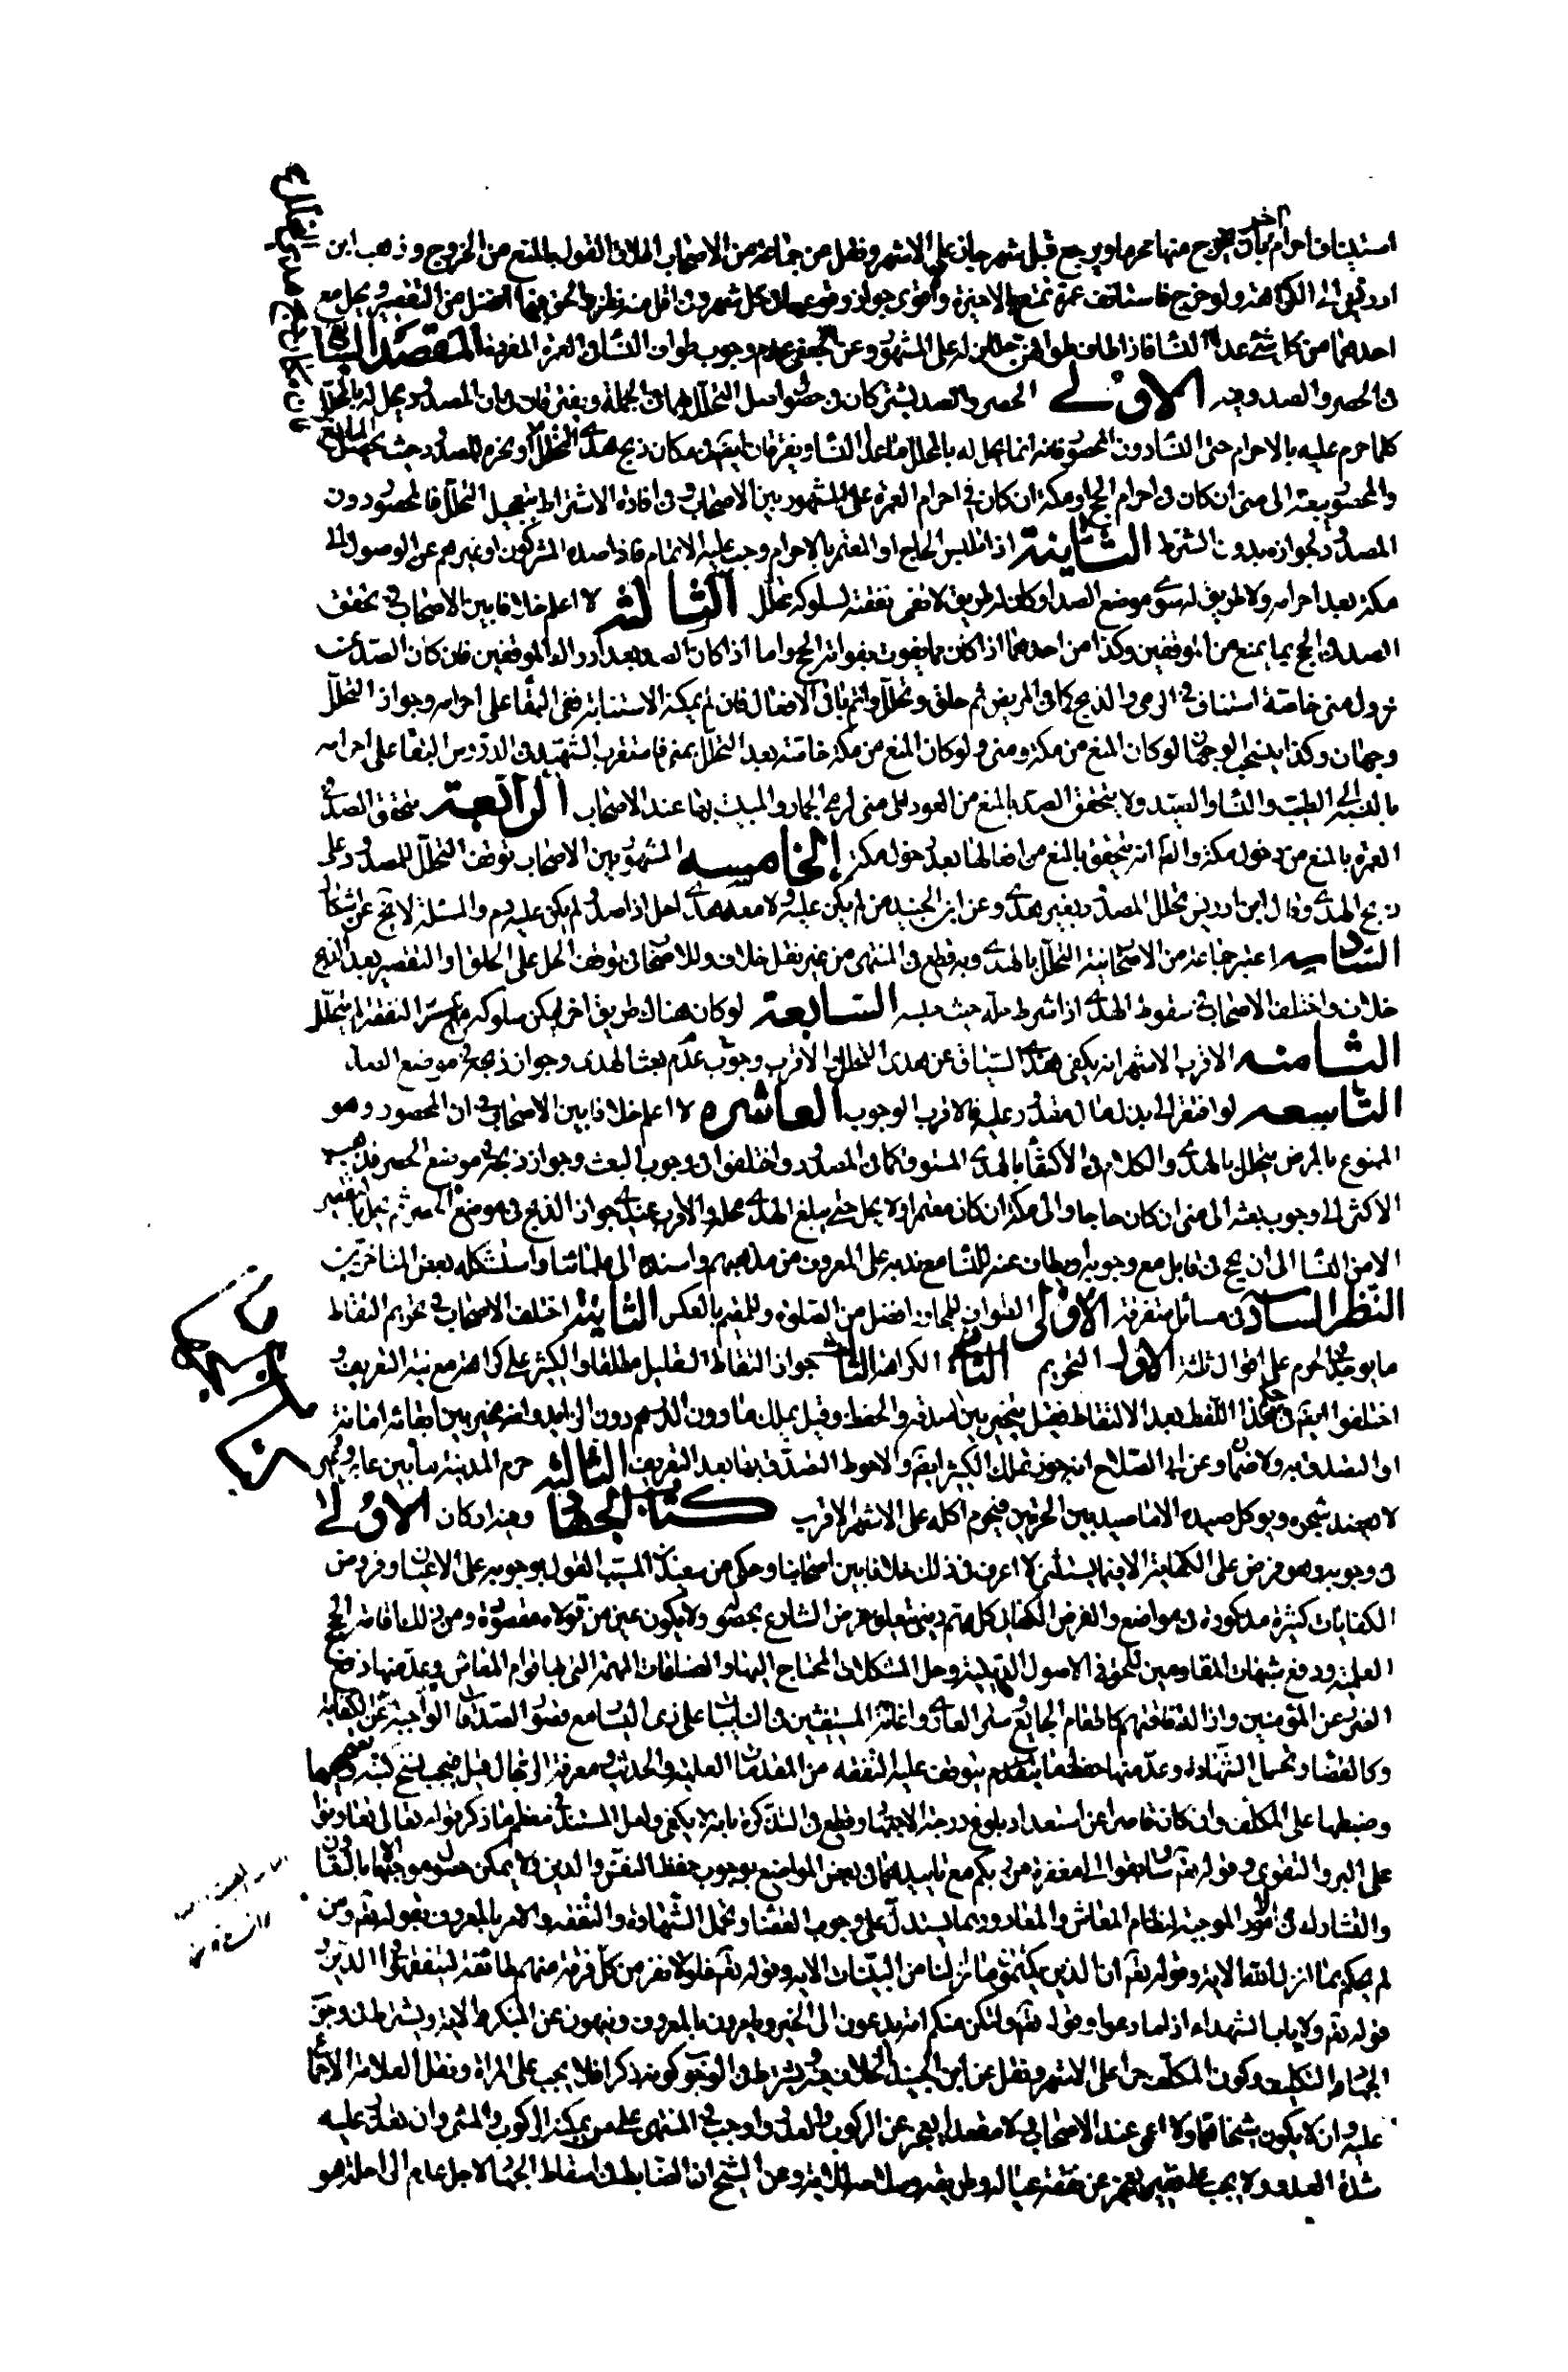 استيناف احرام آخر بان يخرج منها محرما ويرجع قبل شهر جاز على الاشهر ونقل من جماعة من الاصحاب اطلاق القول بالمنع من الخروج وذهب ابن
ادريس الى الكراهة ولو خرج فاستانف عمرة تمتع بالاخيرة والاقوى جواز وقوعها في كل شهر وفي اقل منه نظر والحلق فيها افضل من التقصير ويحل مع
احدهما من كل شيء عدا النسا فاذا طاف طوافهن حللن له على المشهور وعن الجعفي عدم وجوب طواف النسا في العمرة المفردة المقصد الثاني
في الحصر والصد وفيه الاولى الحصر والصد يشتركان في حصول اصل التحلل بهما في الجملة ويفترقان في ان المصدود يحل له بالمحلل
كلما حرم عليه بالاحرام حتى النسا دون المحصور فانه انما يحل له بالمحلل ما عدا النسا ويفترقان ايضا في مكان ذبح هدي التحلل
والمحصور يبعثه الى منى ان كان في احرام الحج او مكة ان كان في احرام العمرة على المشهور بين الاصحاب وفي افادة الاشتراط تعجيل التحلل فالمحصور دون
المصدود لجوازه بدون الشرط الثانية اذا تلبس الحاج او المعتمر بالاحرام وجب عليه الاتمام فاذا صده المشركون او غيرهم عن الوصول الى
مكة بعد احرامه ولا طريق له سوى موضع الصد او كان له طريق لا تفي نفقته لسلوكه تحلل الثالثة لا اعلم خلافا بين الاصحاب في تحقق
الصد في الحج بما يمنع من الموقفين وكذا من احدهما اذا كان مما يفوت بفواته الحج واما اذا كان الصد بعد ادراك الموقفين فان كان الصد عن
نزول منى خاصة استناب في الرمي والذبح كما في المريض ثم حلق وتحلل واتم باقي الافعال فان لم يمكنه الاستنابة ففي البقا على احرامه وجواز التحلل
وجهان وكذا ينسحب الوجهان لو كان المنع من مكة ومنى ولو كان المنع من مكة خاصة بعد التحلل بمنى فاستقرب الشهيد في الدروس البقا على احرامه
بالنسبة الى الطيب والنسا والصيد ولا يتحقق الصد بالمنع من العود الى منى لرمي الجمار والمبيت بها عند الاصحاب الرابعة يتحقق الصد في
العمرة بالمنع من دخول مكة والظاهر انه يتحقق بالمنع من افعالها بعد دخول مكة الخامسه المشهور بين الاصحاب توقف التحلل للمصدود على
ذبح الهدي وقال ابن ادريس يتحلل المصدود بغير هدي وعن ابن الجنيد من لم يكن عليه ولا معه هدي احل اذا صد ولم يكن عليه دم والمسئلة لا تخ عن اشكال
السادسه اعتبر جماعة من الاصحاب نية التحلل بالهدي وبه قطع في المنتهى من غير نقل خلاف وللاصحاب في توقف الحل على الحلق او التقصير بعد الذبح
خلاف واختلف الاصحاب في سقوط الهدي اذا شرط حله حيث حبسه السابعة لو كان هناك طريق اخر يمكن سلوكه مع تيسر النفقة لم يتحلل
الثامنه الاقرب الاشهر انه يكفي هدي السياق عن هدي التحلل والاقرب وجوب عدم بعث الهدي وجواز ذبحه في موضع الصد
التاسعه لو افتقر الى بذل مال مقدور عليه فالاقرب الوجوب العاشره لا اعلم خلافا بين الاصحاب في ان المحصور وهو
الممنوع بالمرض يتحلل بالهدي والكلام في الاكتفا بالهدي المسوق كما في المصدود واختلفوا في وجوب البعث وجواز ذبحه في موضع الحصر فذهب
الاكثر الى وجوب بعثه الى منى ان كان حاجا والى مكة ان كان معتمرا ولا يحل حتى يبلغ الهدي محله والاقرب عندي جواز الذبح في موضع الحصر ثم يحل بالتقصير
الا من النسا الى ان يحج في قابل مع وجوبه او يطاف عنه للنسا مع ندبه على المعروف من مذهبهم واسنده الى علمائنا واستشكله بعض المتاخرين
النظر السادس في مسائل متفرقة الاولى الطواف للمجاور افضل من الصلوة وللمقيم بالعكس الثانية اختلف الاصحاب في تحريم التقاط
ما يوجد في الحرم على اقوال ثلثة الاول التحريم الثاني الكراهة الثالث جواز التقاط القليل مطلقا والكثير على كراهة مع نية التعريف
اختلفوا ايضا في حكم هذا اللقط بعد الالتقاط فقيل يتخير بين الصدقة والحفظ وقيل يملك ما دون الدرهم دون الزايد وانه يخير بين ابقائه امانة
او التصدق به ولا ضمان وعن ابي الصلاح انه جوز تملك الكثير ايضا والاحوط التصدق بها بعد التعريف الثالثة حرم المدينة ما بين عاير ووعير
لا يعضد شجره ويوكل صيده الا ما صيد بين الحرتين فيحرم اكله على الاشهر الاقرب كتاب الجهاد وفيه اركان الاول
في وجوبه وهو فرض على الكفاية الا فيما يستثنى لا اعرف في ذلك خلافا بين اصحابنا وحكي من سعيد بن المسيب القول بوجوبه على الاعيان وفروض
الكفايات كثيرة مذكورة في مواضع والفرض الكفاي كل مهم ديني يتعلق غرض الشارع بحصوله ولا يكون عين من يتولاه مقصودة ومن ذلك اقامة الحجج
العلمية ودفع شبهات المقاومين للحق في الاصول الدينية وحل المشكل المحتاج اليها والصناعات المهمة التي بها قوام المعاش وعد منها دفع
الضرر عن المؤمنين وازالة فاقتهم كاطعام الجايع وستر العاري واغاثة المستغيثين في النايبات على ذي اليسار مع قصور الصدقات الواجبة عن الكفاية
وكالقضا وتحمل الشهادة وعد منها حفظ ما يتقدم يتوقف عليه التفقه من المقدمات العلمية والحديث ومعرفة الرجال قيل فيجب نسخ كتبه وتصحيحها
وضبطها على المكلف وان كان قاصرا عن استعداد بلوغ درجة الاجتهاد وقطع في التذكرة بانه لا يكفي ولعل المستند في معظم ما ذكر قوله تعالى تعاونوا
على البر والتقوى وقوله تعـ سارعوا الى مغفرة من ربكم مع تاييده بما في بعض المواضع بوجوب حفظ النفس والدين ولا يمكن حصول موجباتها بالتقاعد
والتشارك في الامور الموجبة لنظام المعاش والمعاد وربما يستدل على وجوب القضا وتحمل الشهادة والتفقه والامر بالمعروف بقوله تعـ ومن
لم يحكم بما انزل الله الاية وقوله تعـ ان الذين يكتمون ما انزلنا من البينات الاية وقوله تعـ فلولا نفر من كل فرقة منهم طائفة ليتفقهوا في الدين
قوله تعـ ولا ياب الشهداء اذا ما دعوا وقوله تعـ ولتكن منكم امة يدعون الى الخير ويامرون بالمعروف وينهون عن المنكر الاية ويشترط في وجوب
الجهاد التكليف وكون المكلف حرا على الاشهر ونقل عن ابن الجنيد الخلاف فيه ويشترط في الوجوب كونه ذكرا فلا يجب على المراة ونقل العلامة الاجماع
عليه وان لا يكون شيخا هما ولا اعمى عند الاصحاب ولا مقعدا يعجز عن الركوب والعدو واوجب في المنتهى على من يمكنه الركوب والمشي وان تعذر عليه
شدة العدو ولا يجب على فقير يعجز عن نفقة عياله وطريقه وصلاح واليفه وعن الشيخ ان الضابط في اسقاط الجهاد لاجل عدم الراحلة هو